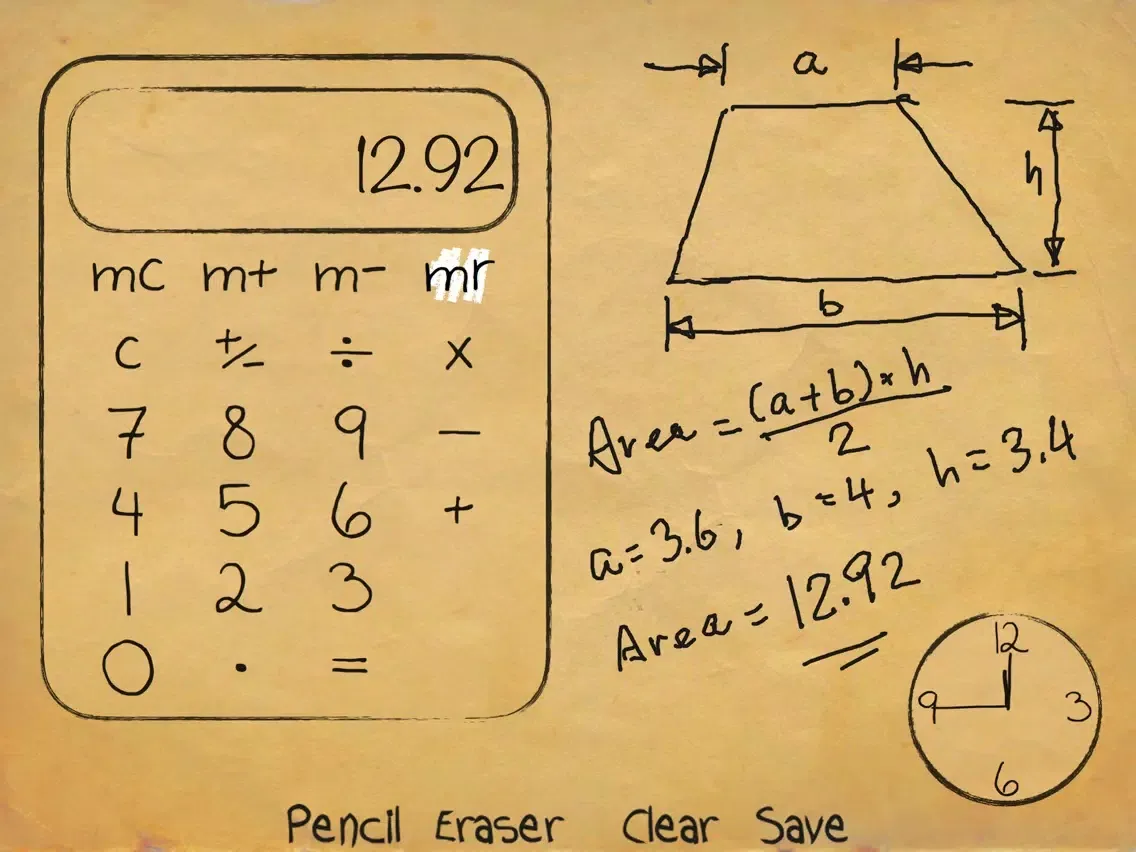 12.92
mc m+ m- mr
c +/- ÷ x
7 8 9 −
4 5 6 +
1 2 3
0 . =
a
h
b
Area = (a+b)*h / 2
a=3.6, b=4, h=3.4
Area = 12.92
12
9 3
6
Pencil Eraser Clear Save